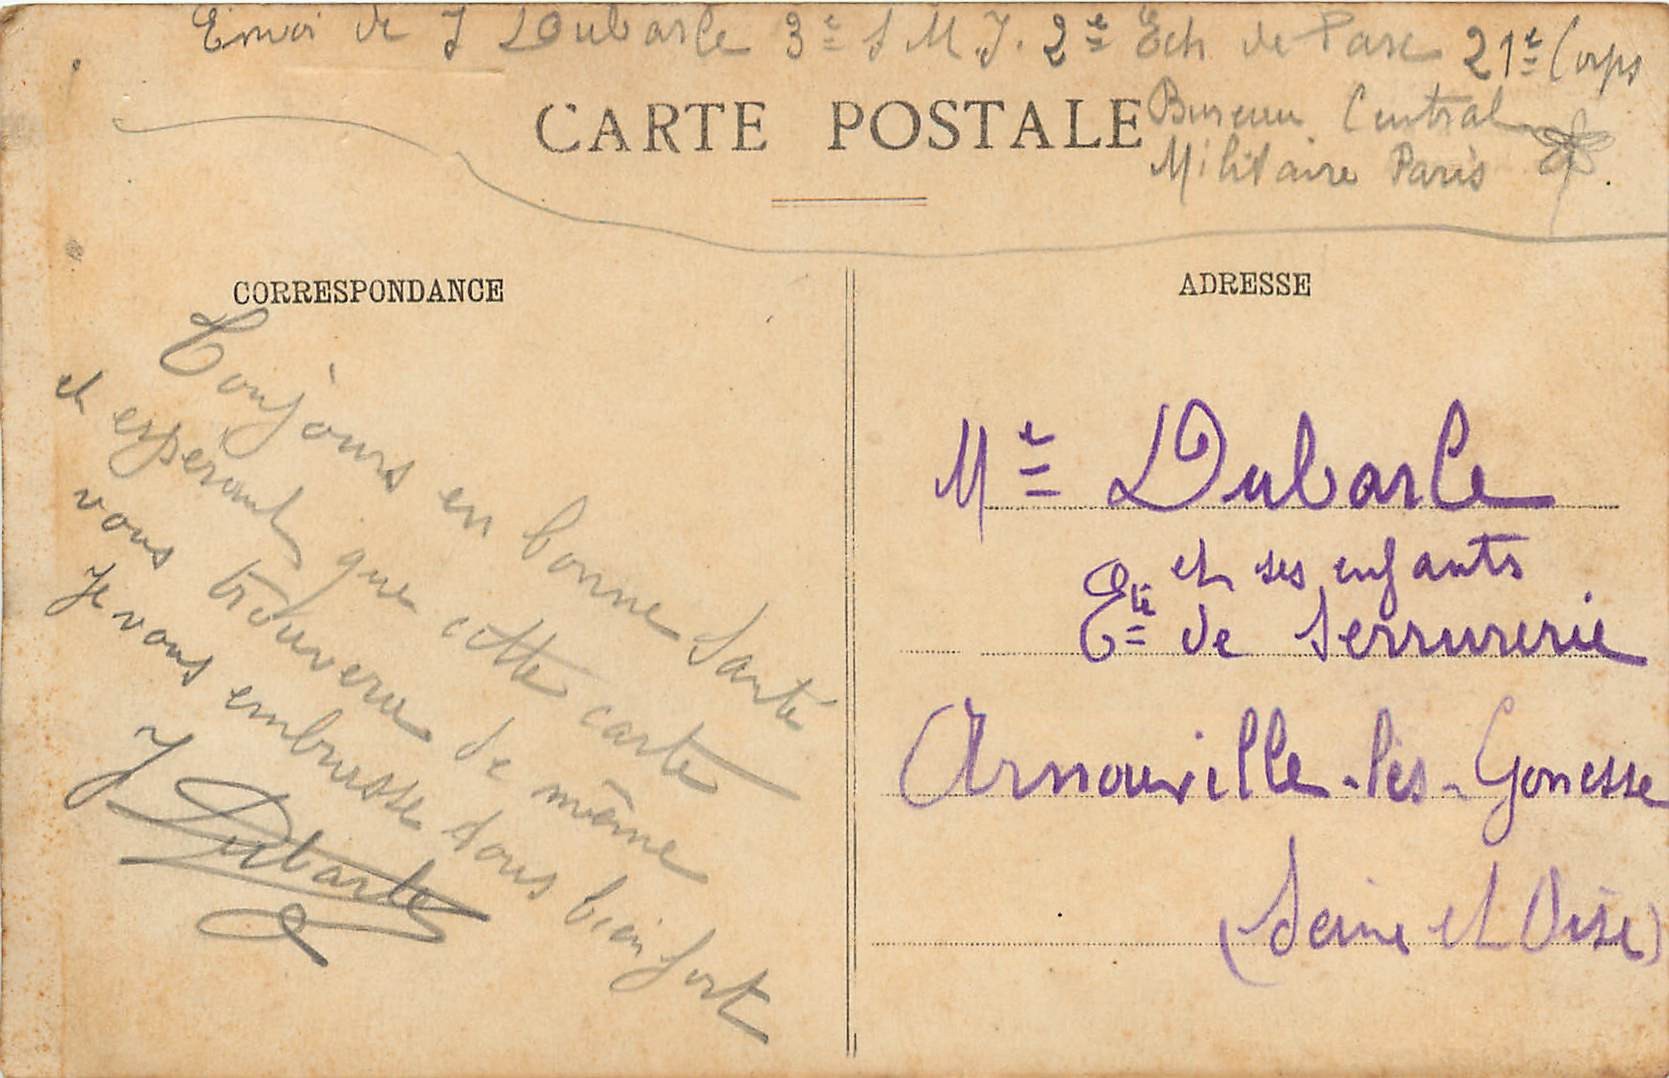 Envoi de J Dubarle 3e S M I. 2e Ech de Parc 21e Corps
CARTE POSTALE
Bureau Central
Militaire Paris
CORRESPONDANCE
Toujours en bonne Santé
et espérant que cette carte
vous trouvera de même
Je vous embrasse tous bien fort
J Dubarle
ADRESSE
Me Dubarle
et ses enfants
Eté de Serrurerie
Arnouville-lès-Gonesse
(Seine et Oise)